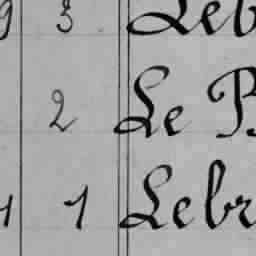 9 3 Leb
2 Le B
1 1 Lebr